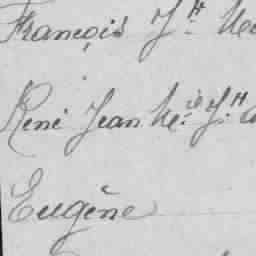 François J.ʰ
René Jean M.ⁱᵉ J.ʰ
Eugène